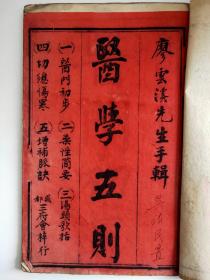 廖雲溪先生手輯
醫學五則
(一)醫門初步
(二)藥性簡要
(三)湯頭歌括
(四)切總傷寒
(五)增補脈訣
成都三府會梓行